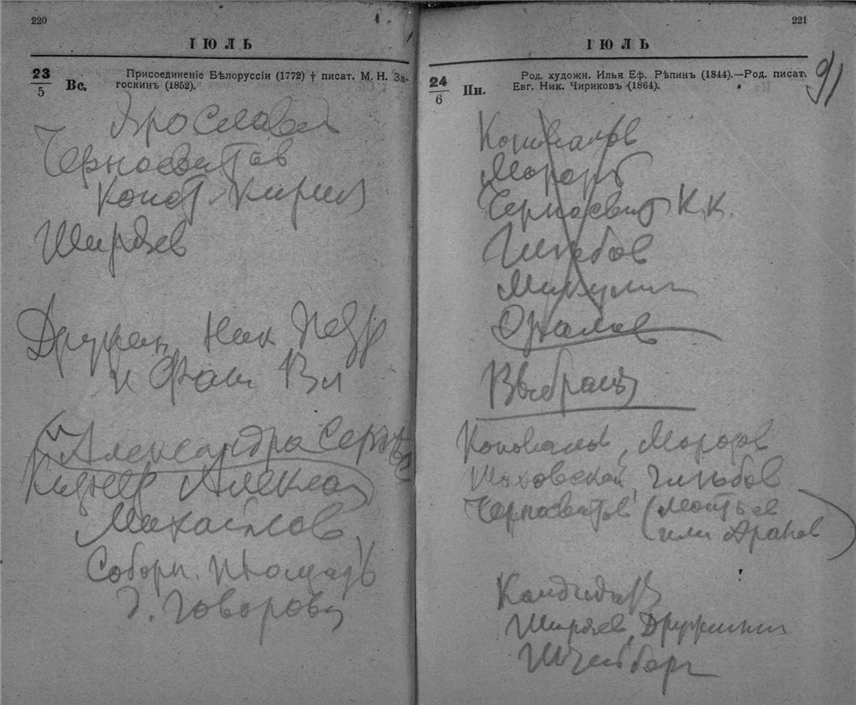 220
ІЮЛЬ
23
5
Вс.
Присоединеніе Бѣлоруссіи (1772) † писат. М. Н. За-
госкинъ (1852).
Ярославль
Черносвитов
Конст. Кирил
Ширяев
Дружин Ник Петр
и Вл
Александра Серг
Михайлов
Соборн. площадь
д. Говорова
221
ІЮЛЬ
91
24
6
Пн.
Род. художн. Илья Еф. Рѣпинъ (1844).—Род. писат.
Евг. Ник. Чириковъ (1864).
Коновалов
Морозов
Черносвит К.К.
Глебов
Микулин
Выбраны
Коновалов, Морозов
Шаховской, Глебов
Черносвитов (
или
Кандидаты
Ширяев, Дружинин
Штейнберг